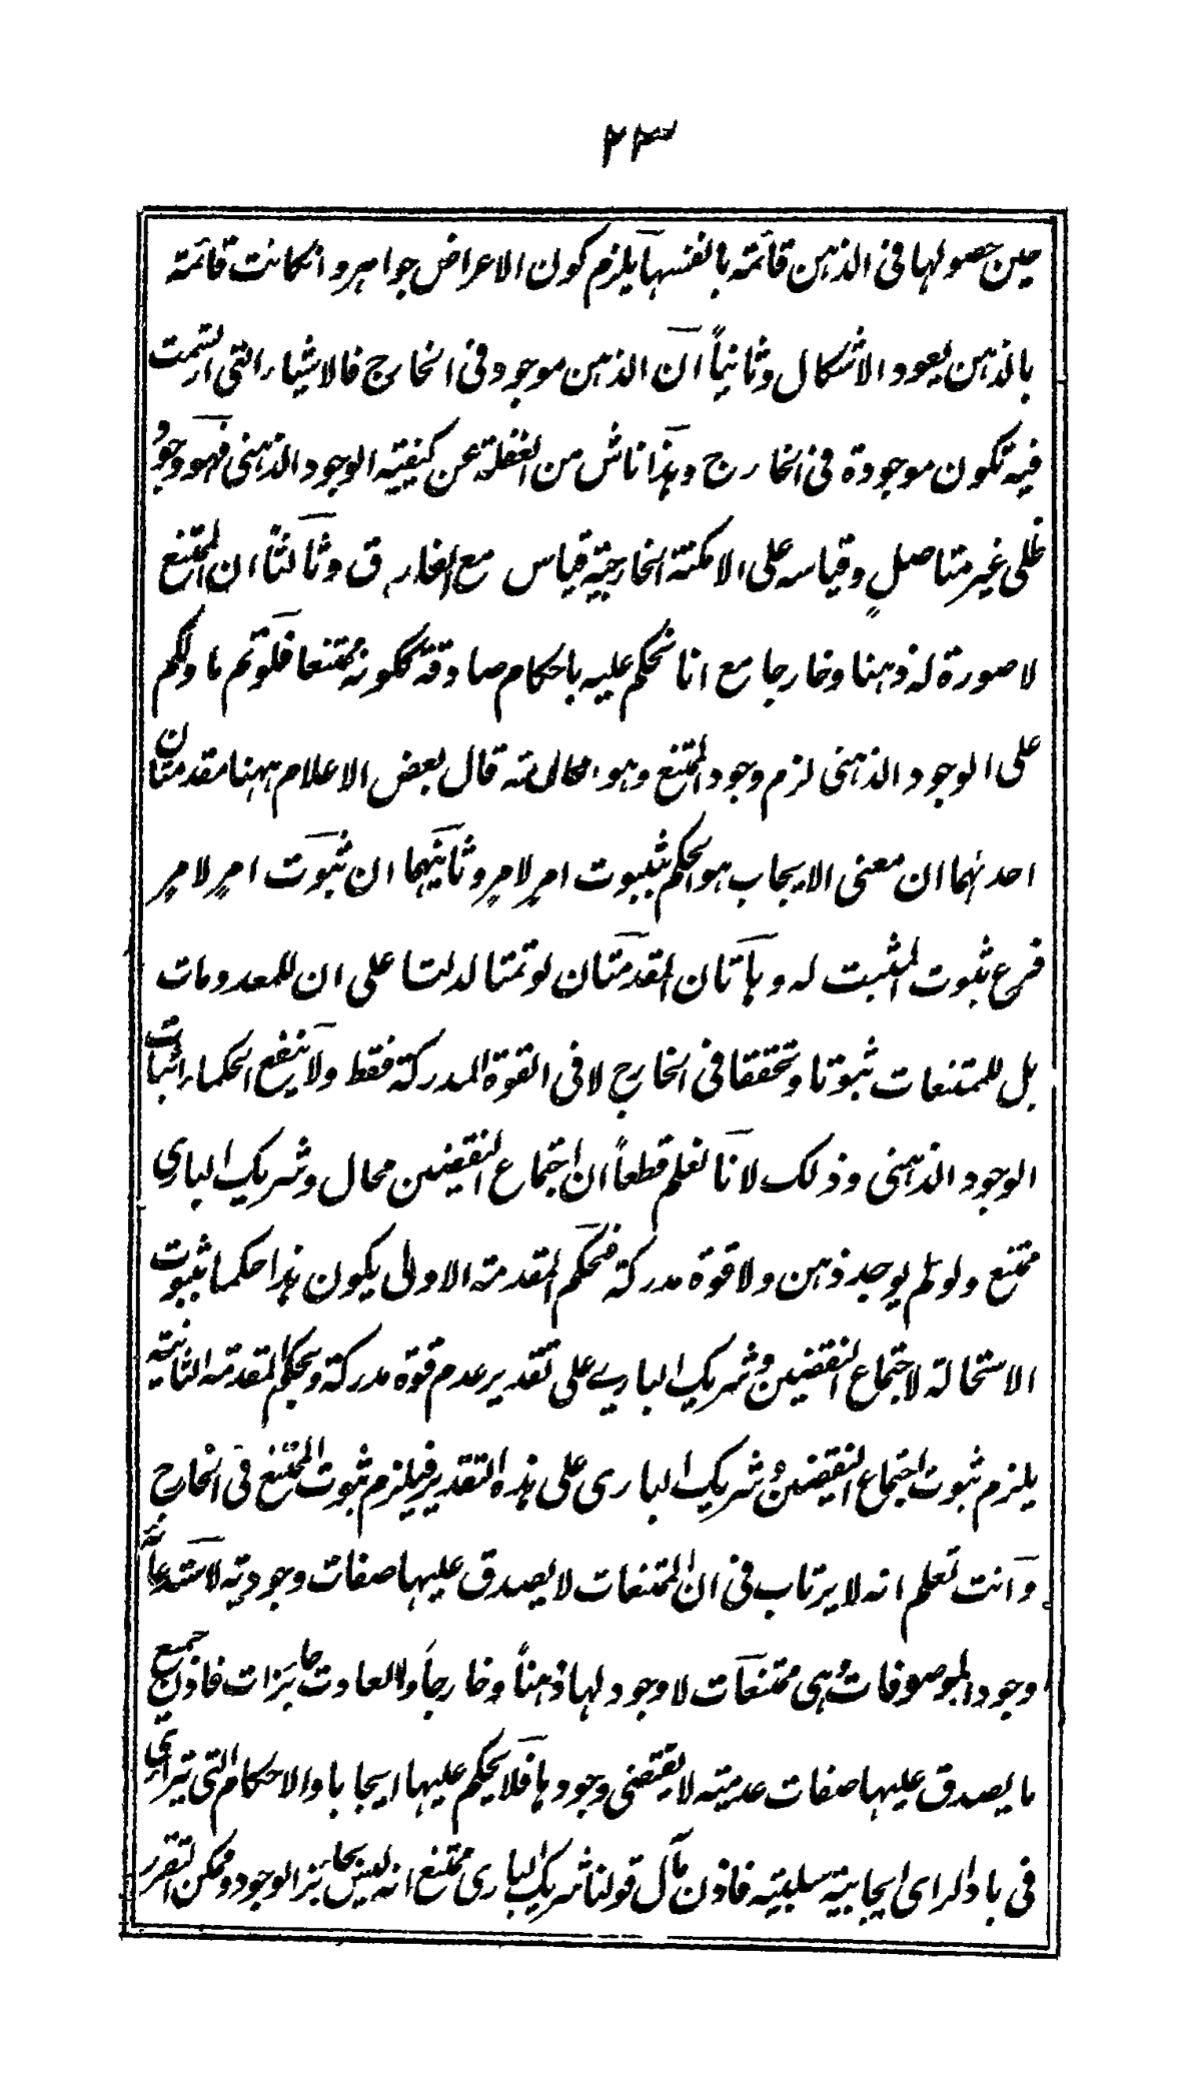 ٢٣
حين حصولها فى الذهن قائمة بانفسها يلزم كون الاعراض جواهر وانكانت قائمة
بالذهن يعود الاشكال وثانياً ان الذهن موجود فى الخارج فالاشياء التى ارتسمت
فيه تكون موجودة فى الخارج وهذا ناش من الغفلة عن كيفية الوجود الذهنى فهو وجود
ظلى غير متاصلٍ وقياسه على الامكنة الخارجية قياس مع الفارق وثالثاً ان الممتنع
لا صورة له ذهنا وخارجا مع انا نحكم عليه باحكام صادقة ككونه ممتنعا فلو تم ما دلكم
على الوجود الذهنى لزم وجود الممتنع وهو قال بعض الاعلام ههنا مقدمتان
احدهما ان معنى الايجاب هو الحكم بثبوت امر لامر وثانيهما ان ثبوت امر لامر
فرع ثبوت المثبت له وهاتان المقدمتان لو تمتا لدلتا على ان للمعدومات
بل للممتنعات ثبوتا وتحققا فى الخارج لا فى القوة المدركة فقط ولا ينفع الحكماء اثبات
الوجود الذهنى وذلك لانا نعلم قطعاً ان اجتماع النقيضين محال وشريك البارى
ممتنع ولو لم يوجد ذهن ولا قوة مدركة فبحكم المقدمة الاولى يكون هذا حكما بثبوت
الاستحالة لاجتماع النقيضين وشريك البارے على تقدير عدم قوة مدركة وبحكم المقدمة الثانية
يلزم ثبوت اجتماع النقيضين وشريك البارى على هذه التقدير فيلزم ثبوت الممتنع فى الخارج
وانت تعلم انه لا يرتاب فى ان الممتنعات لا يصدق عليها صفات وجودية لاستدعائه
وجود الموصوفات وهى ممتنعات لا وجود لها ذهناً وخارجاً والا لعادت جائزات فاذن جميع
ما يصدق عليها صفات عدمية لا يقتضى وجودها فلا يحكم عليها ايجابا والاحكام التى تترائى
فى بادالراى ايجابية سلبية فاذن مآل قولنا شريك البارى ممتنع انه ليس بجائز الوجود وممكن التقرر